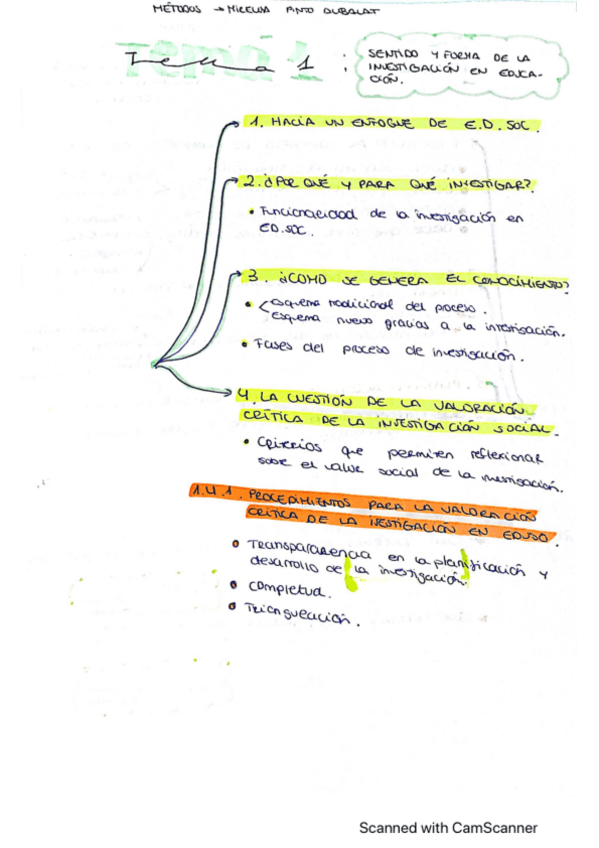 MÉTODOS → MICELIA PINTO DUBALAT
Tema 1 :
SENTIDO Y FORMA DE LA
INVESTIGACIÓN EN EDUCA-
CIÓN.
1. HACIA UN ENFOQUE DE E.D. SOC.
2. ¿POR QUÉ Y PARA QUÉ INVESTIGAR?
• Funcionalidad de la investigación en
ED.SOC.
3. ¿CÓMO SE GENERA EL CONOCIMIENTO?
• Esquema tradicional del proceso.
Esquema nuevo gracias a la investigación.
• Fases del proceso de investigación.
4. LA CUESTIÓN DE LA VALORACIÓN
CRÍTICA DE LA INVESTIGACIÓN SOCIAL.
• Criterios que permiten reflexionar
sobre el valor social de la investigación.
1.4.1. PROCEDIMIENTOS PARA LA VALORACIÓN
CRÍTICA DE LA INVESTIGACIÓN EN EDUSO.
• Transparencia en la planificación y
desarrollo de la investigación.
• Completud.
• Triangulación.
Scanned with CamScanner